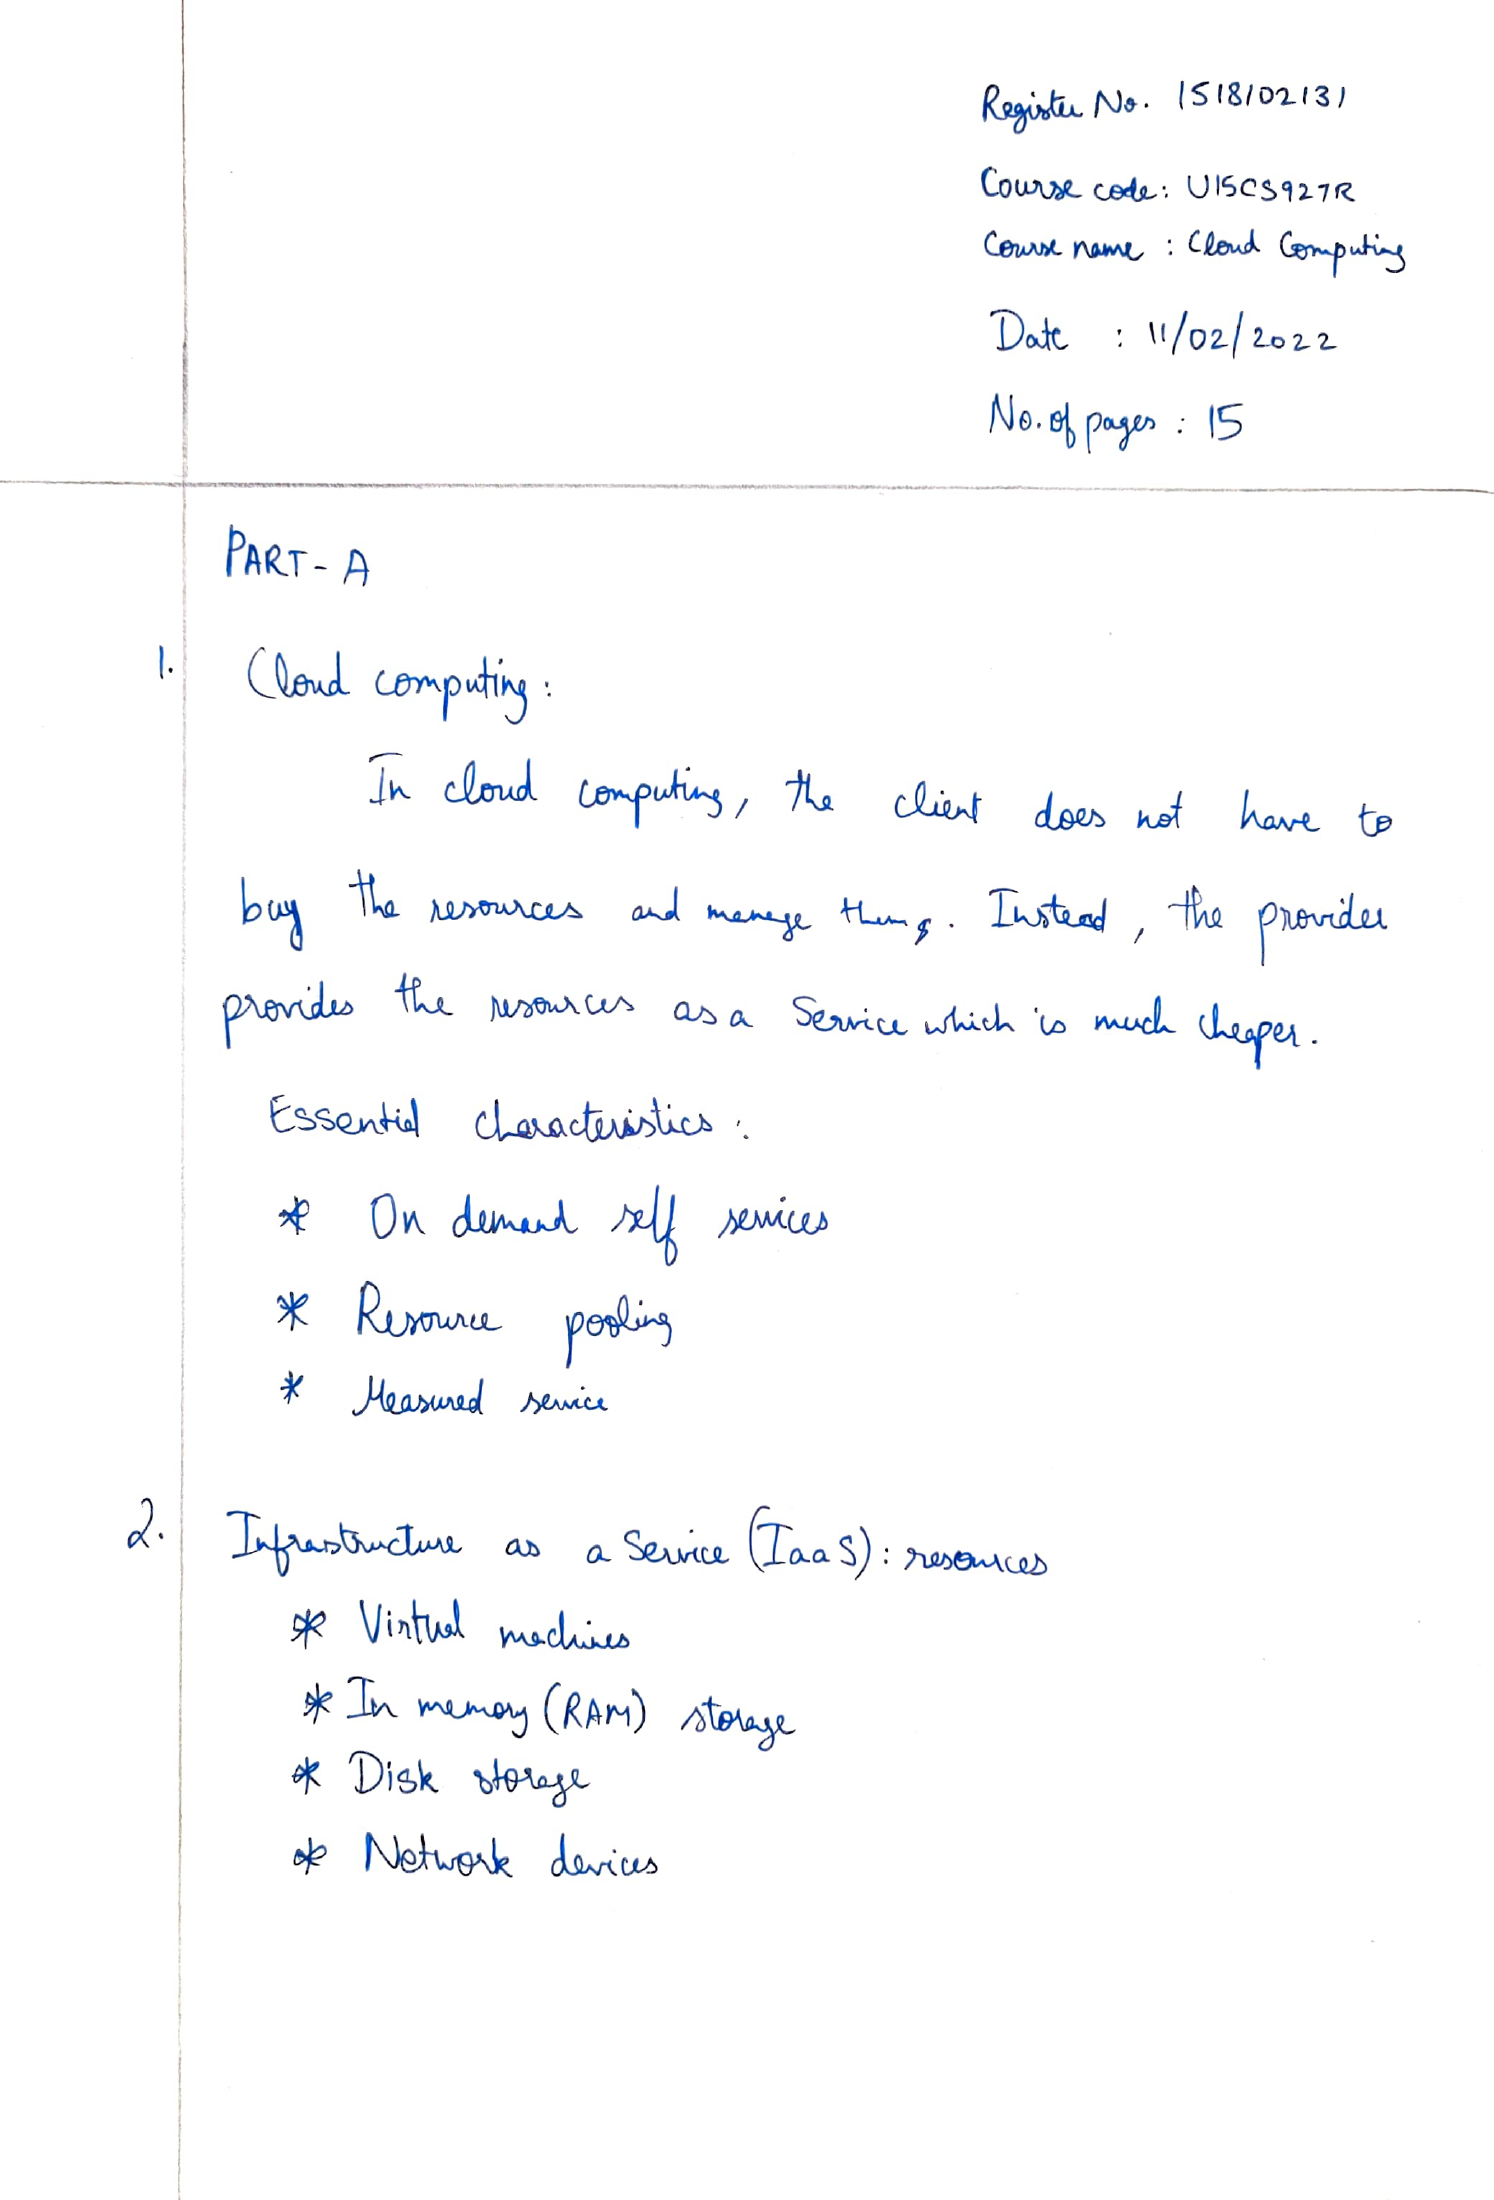 Register No. 1518102131
Course code: U15CS927R
Course name : Cloud Computing
Date : 11/02/2022
No. of pages : 15
PART - A
1. Cloud computing:
In cloud computing, the client does not have to
buy the resources and manage them. Instead, the provider
provides the resources as a Service which is much cheaper.
Essential characteristics:
* On demand self services
* Resource pooling
* Measured service
2. Infrastructure as a Service (IaaS): resources
* Virtual machines
* In memory (RAM) storage
* Disk storage
* Network devices